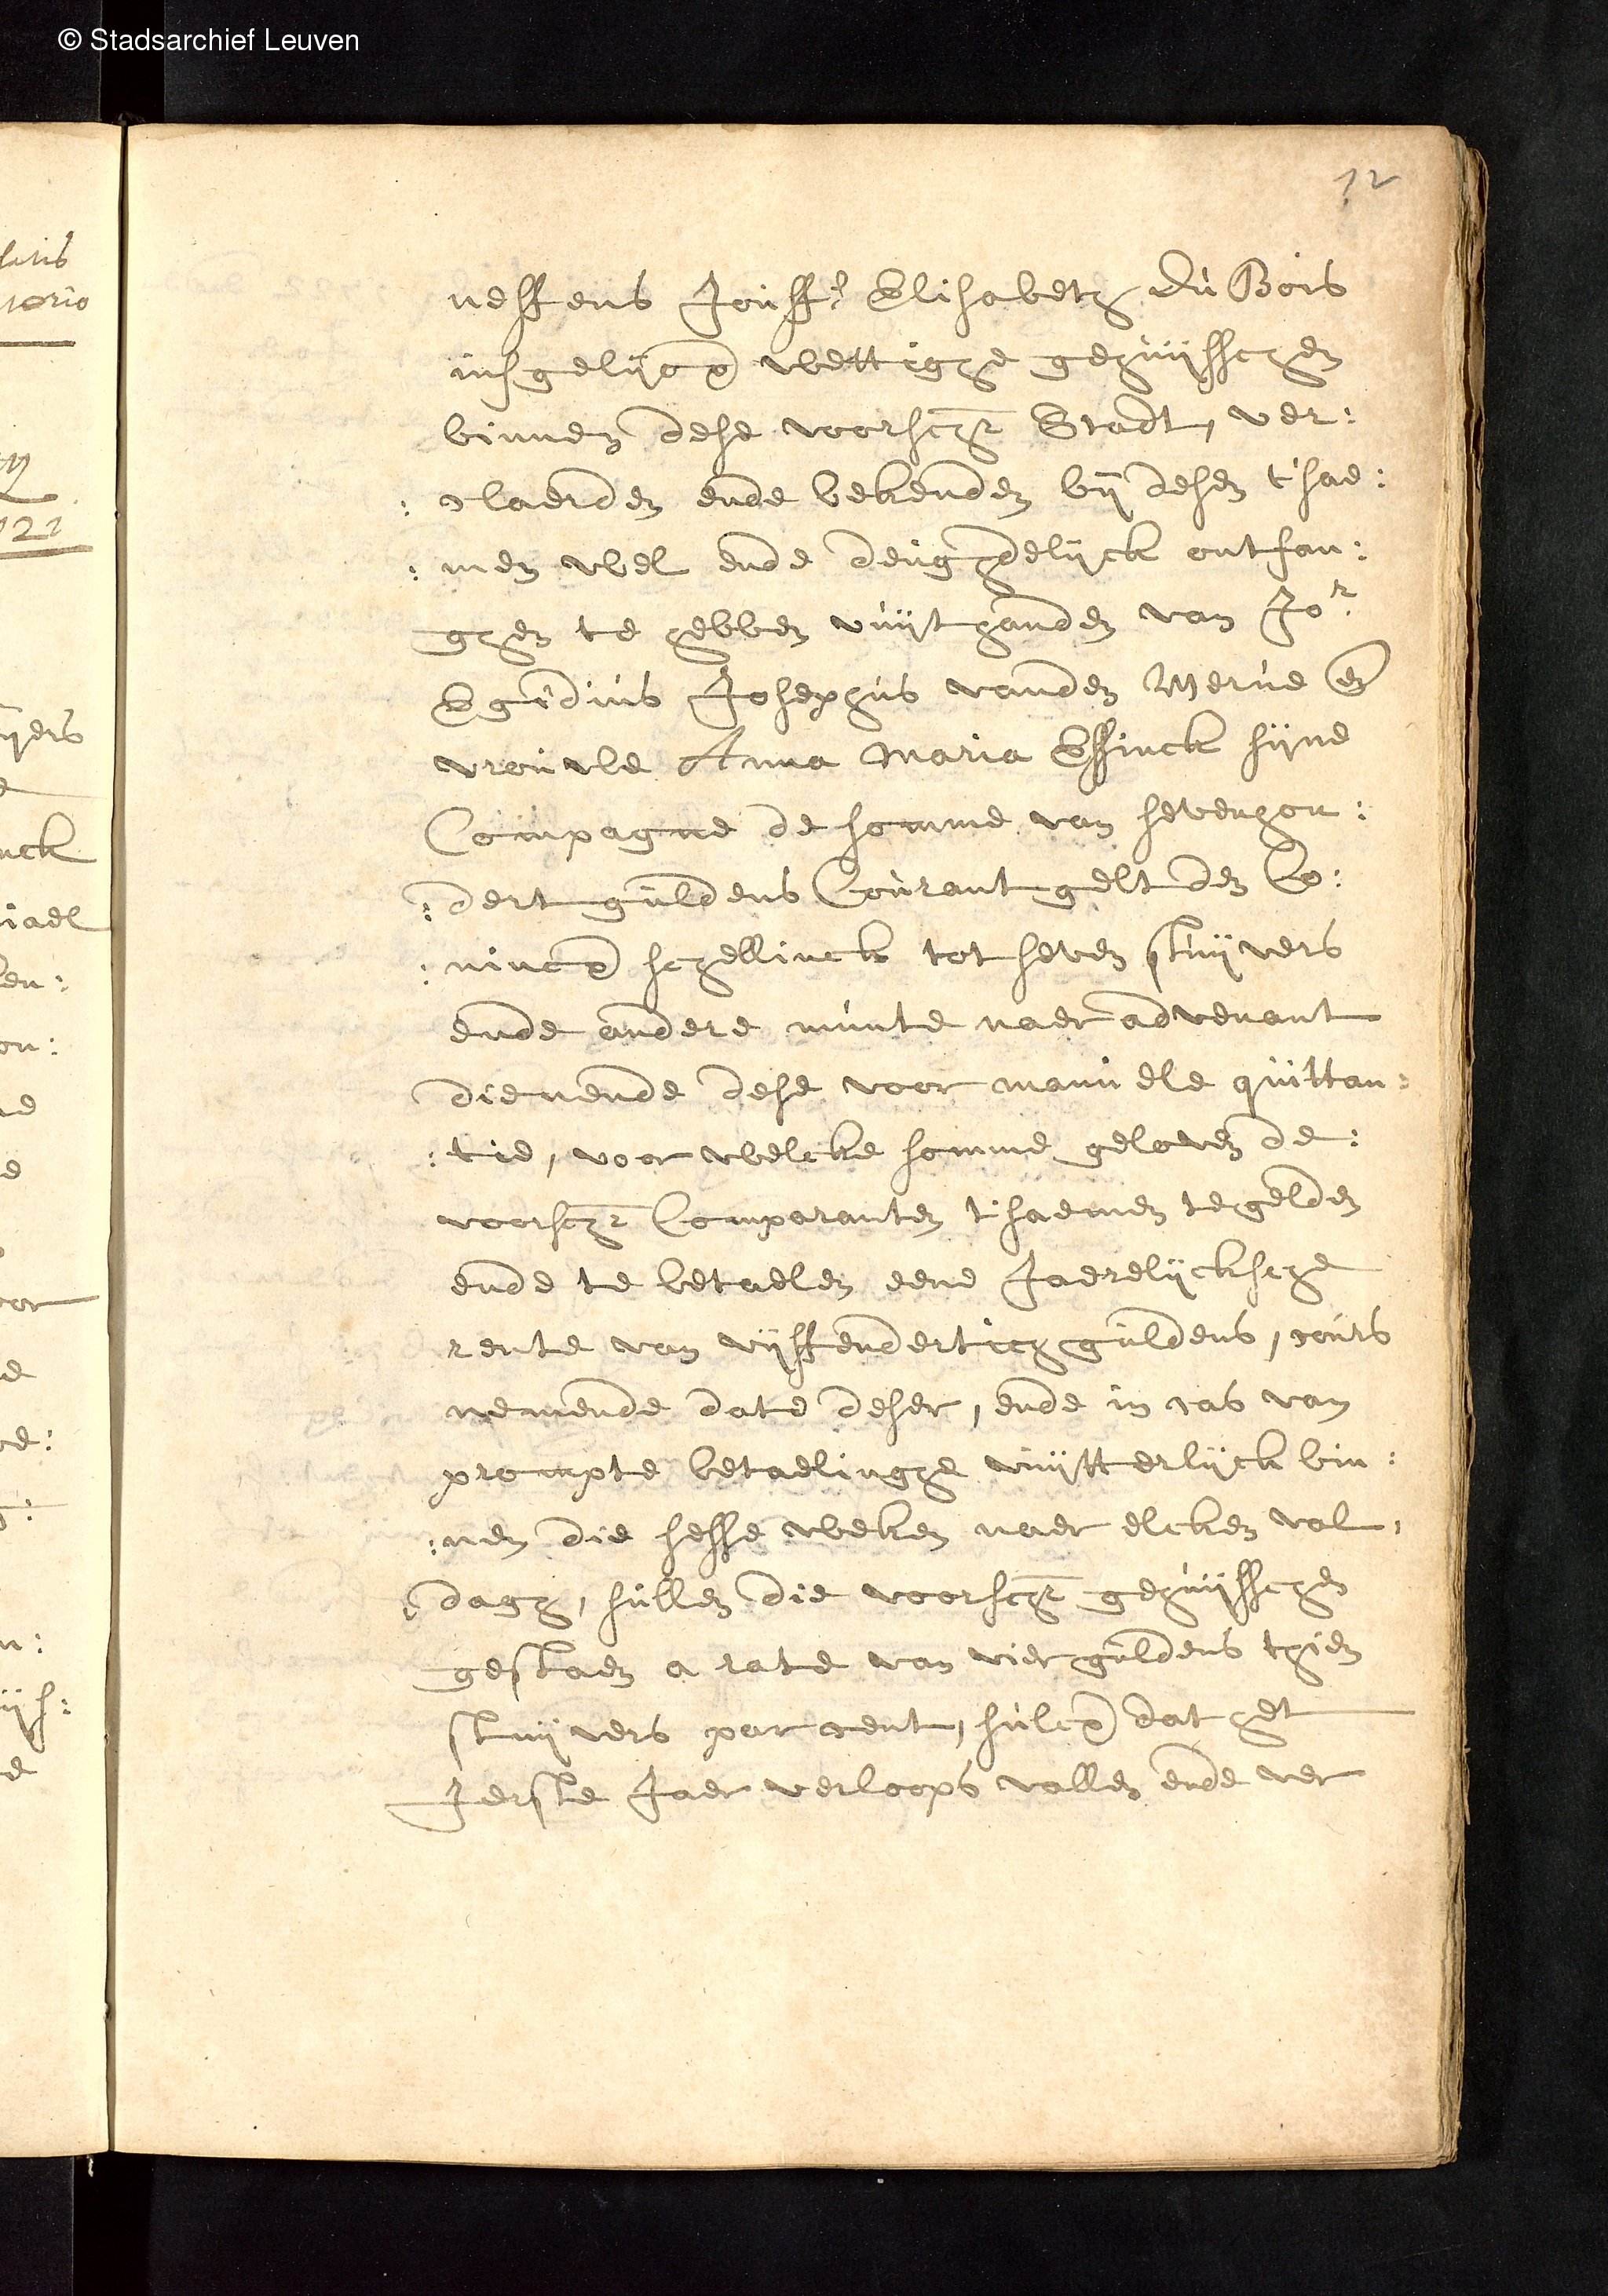 © Stadsarchief Leuven
12
neffens Jouffe Elisabeth du Bois
insgelijcx wettighe gehuijsschen
binnen dese voorschr Stadt, ver:
:claerden ende bekenden bij desen t'sae:
:men wel ende deughdelijck ontfan:
ghen te hebben uuijt handen van Jor
Egidius Josephus vanden Werve en
vrouwe Anna Maria Essinck sijne
Compagne de somme van sevenhon:
:dert guldens Courant gelt den Co:
:nincx schellinck tot seven stuijvers
ende andere munte naer advenant
dienende dese voor manuele quittan:
:tie, voor welcke somme geloven de:
voorschr Comparanten t'saemen te gelden
ende te betaelen eene Jaerelijcksche
rente van vijffendertich guldens, cours
nemende date deser, ende in cas van
prompte betaelinghe uuijtterlijck bin:
:nen die sesse weken naer elcken val,
:dagh, sullen die voorschr gehuijsschen
gestaen a rate van vier guldens thien
stuijvers par cent, sulcx dat het
Jerste Jaer verloops vallen ende ver
satis
torio
121
ijers
nck
iael
en:
on:
e
oor
e:
n:
ijs:
e